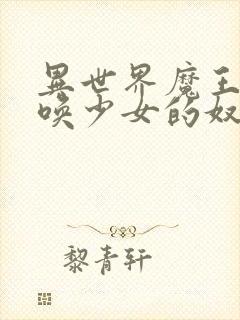 異世界魔王
唤少女的奴
黎青轩